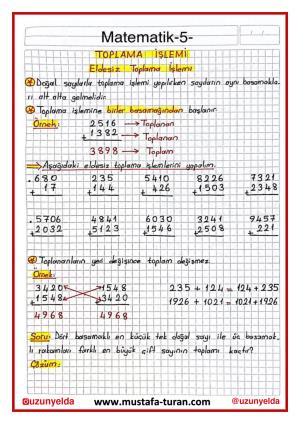 Matematik-5-
TOPLAMA İŞLEMİ
Eldesiz Toplama İşlemi
* Doğal sayılarla toplama işlemi yapılırken sayıların aynı basamakla-
rı alt alta gelmelidir.
* Toplama işlemine birler basamağından başlanır.
Örnek: 2516 → Toplanan
+ 1382 → Toplanan
3898 → Toplam
Aşağıdaki eldesiz toplama işlemlerini yapalım.
680 235 5410 8226 7321
+ 17 + 144 + 426 + 1503 + 2348
5706 4841 6030 3241 9457
+ 2032 + 5123 + 1546 + 2508 + 221
* Toplananların yeri değişince toplam değişmez.
Örnek:
3420 1548 235 + 124 = 124 + 235
+ 1548 + 3420 1926 + 1021 = 1021 + 1926
4968 4968
Soru: Dört basamaklı en küçük tek doğal sayı ile üç basamak-
lı rakamları farklı en büyük çift sayının toplamı kaçtır?
Çözüm:
@uzunyelda www.mustafa-turan.com @uzunyelda